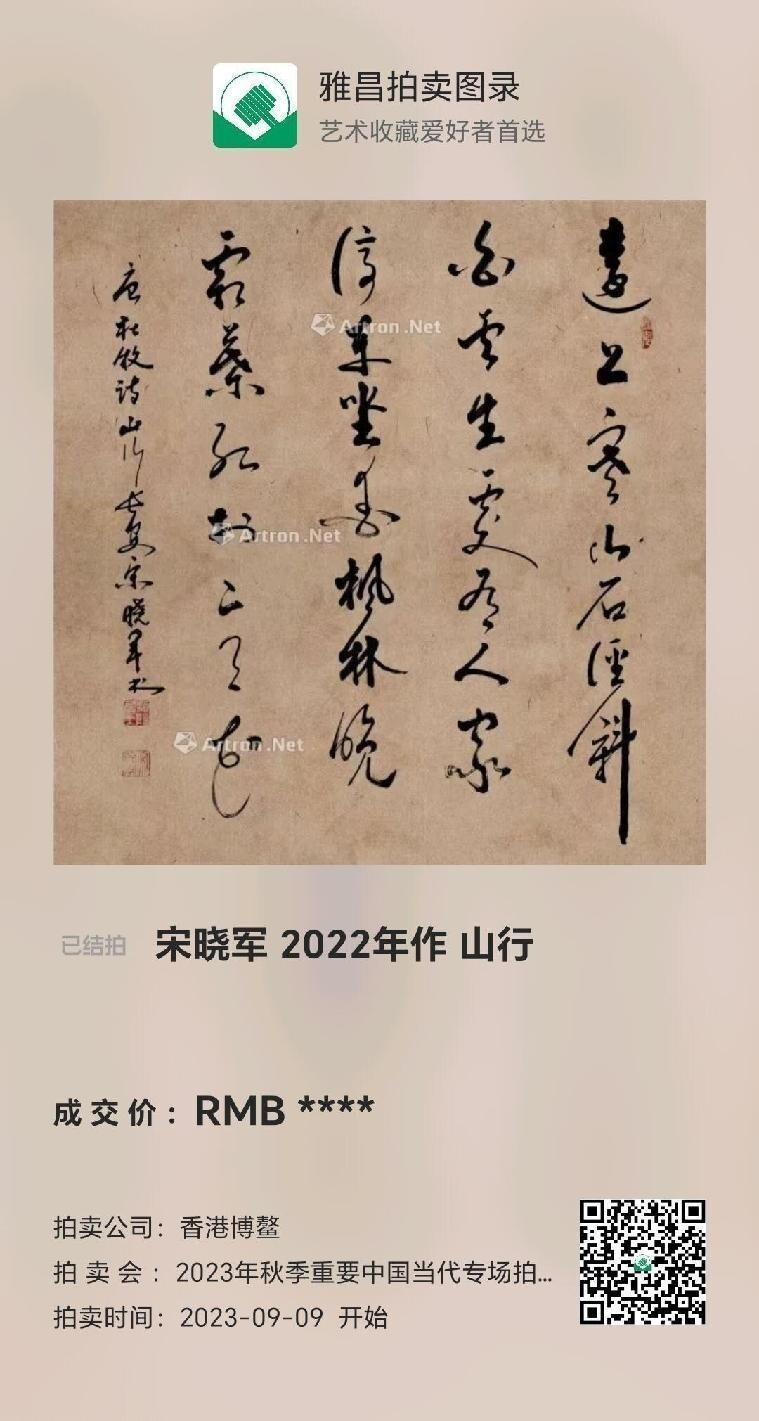 雅昌拍卖图录
艺术收藏爱好者首选
遠上寒山石徑斜
白雲生處有人家
停車坐愛楓林晚
霜葉紅於二月花
唐杜牧詩山行長安宋曉軍書
Artron.Net
Artron.Net
Artron.Net
已结拍 宋晓军 2022年作 山行
成交价：RMB ****
拍卖公司：香港博鳌
拍卖会：2023年秋季重要中国当代专场拍...
拍卖时间：2023-09-09 开始